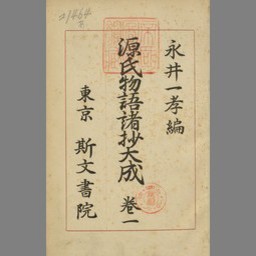 永井一孝編
源氏物語諸抄大成 卷一
東京 斯文書院